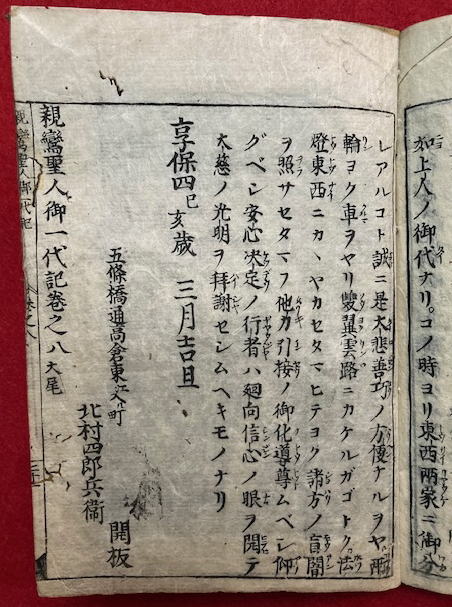 如上人ノ御代ナリ。コノ時ヨリ東西両家ニ御分
レアルコト誠ニ是大悲善巧ノ方便ナルヲヤ両
輪ヨク車ヲヤリ雙翼雲路ニカケルガゴトク。法
燈東西ニカヽヤカセタマヒテヨク諸方ノ盲闇
ヲ照サセタマフ他力引接ノ御化導尊ムベシ仰
グベシ安心決定ノ行者ハ廻向信心ノ眼ヲ開テ
大慈ノ光明ヲ拝謝セシムヘキモノナリ
享保四己亥歳 三月吉日
五條橋通高倉東江入町
北村四郎兵衛 開板
親鸞聖人御一代記巻之八大尾